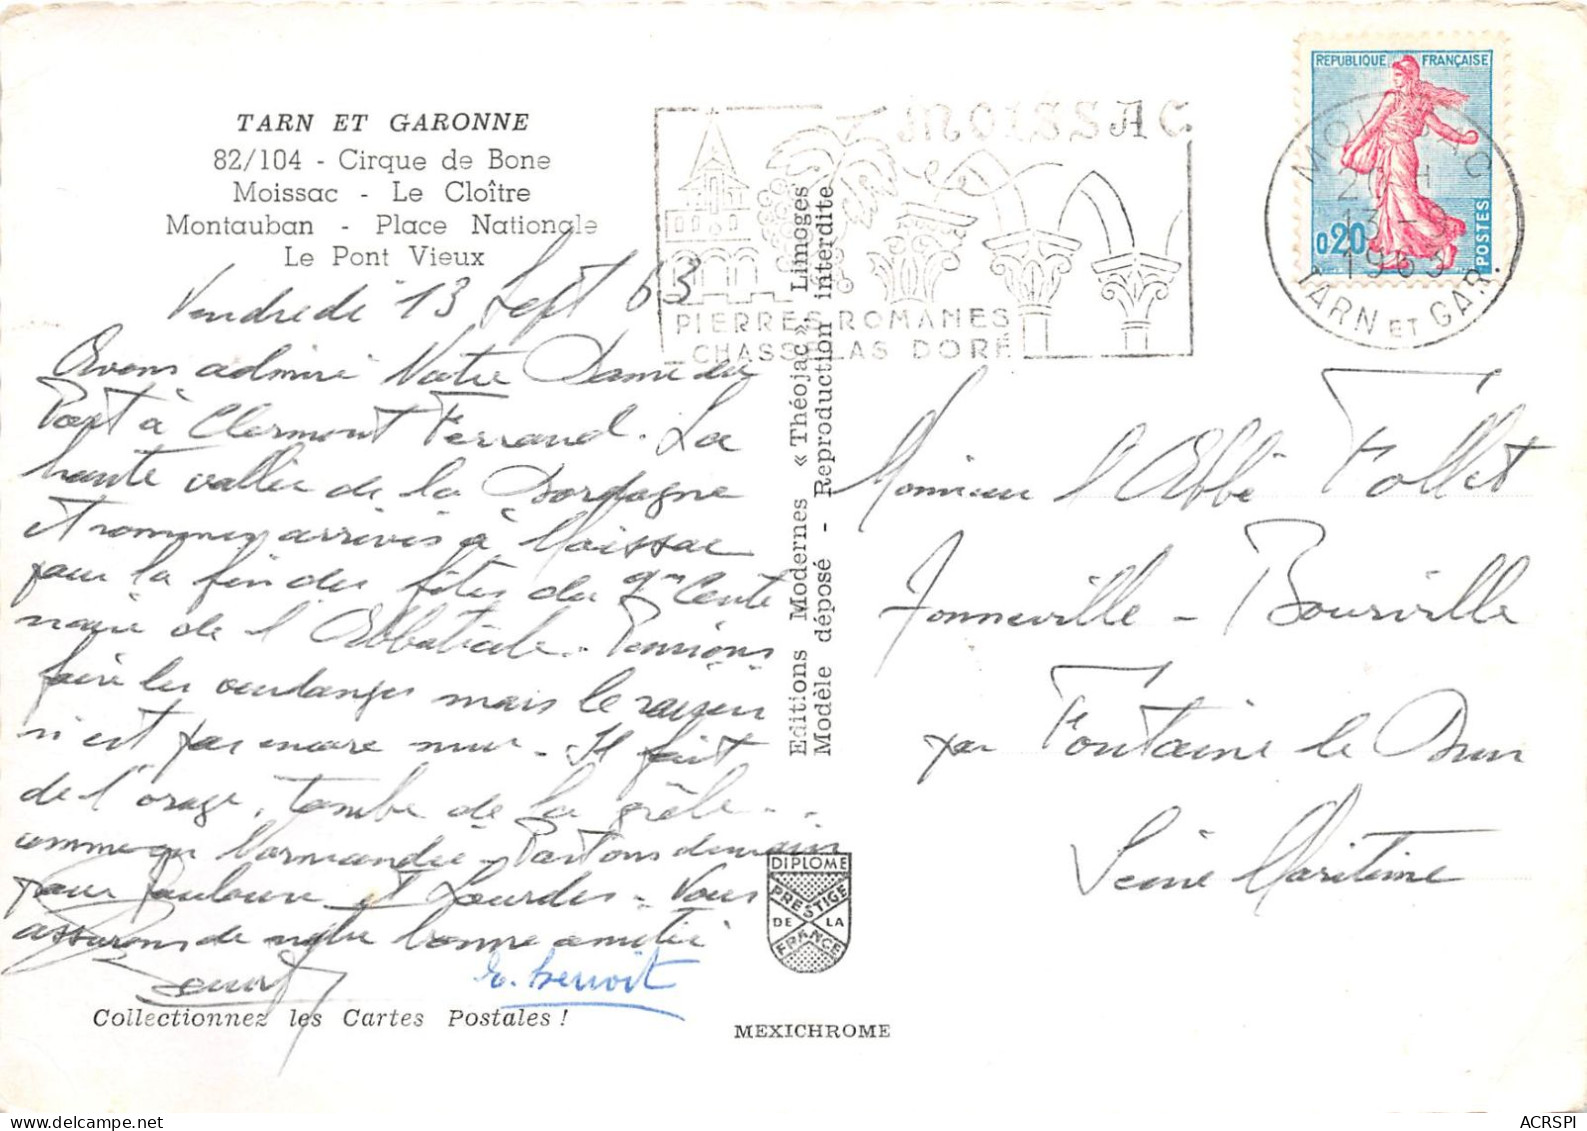 TARN ET GARONNE
82/104 - Cirque de Bone
Moissac - Le Cloître
Montauban - Place Nationale
Le Pont Vieux
Vendredi 13 Sept 63
Avons admiré Notre Dame du
Port à Clermont Ferrand. La
haute vallée de la Dordogne
et sommes arrivés à Moissac
pour la fin des fêtes du 9me Cente
naire de l'Abbatiale. Pensions
faire les vendanges mais le raisin
n'est pas encore mur - Il fait
de l'orage, tombe de la grêle...
comme en Normandie - Partons demain
pour Toulouse et Lourdes - Vous
assurons de notre bonne amitié
E. Benoit
Collectionnez les Cartes Postales !
Editions Modernes « Théojac » Limoges
Modèle déposé - Reproduction interdite
DIPLOME
PRESTIGE
DE LA
FRANCE
MEXICHROME
MOISSAC
PIERRES ROMANES
CHASSELAS DORÉ
REPUBLIQUE FRANÇAISE
0,20
POSTES
MOISSAC
13 - 9
1963
TARN ET GAR.
Monsieur l'Abbé Follet
Tonneville - Bourville
par Fontaine le Dun
Seine Maritime
ACRSPI